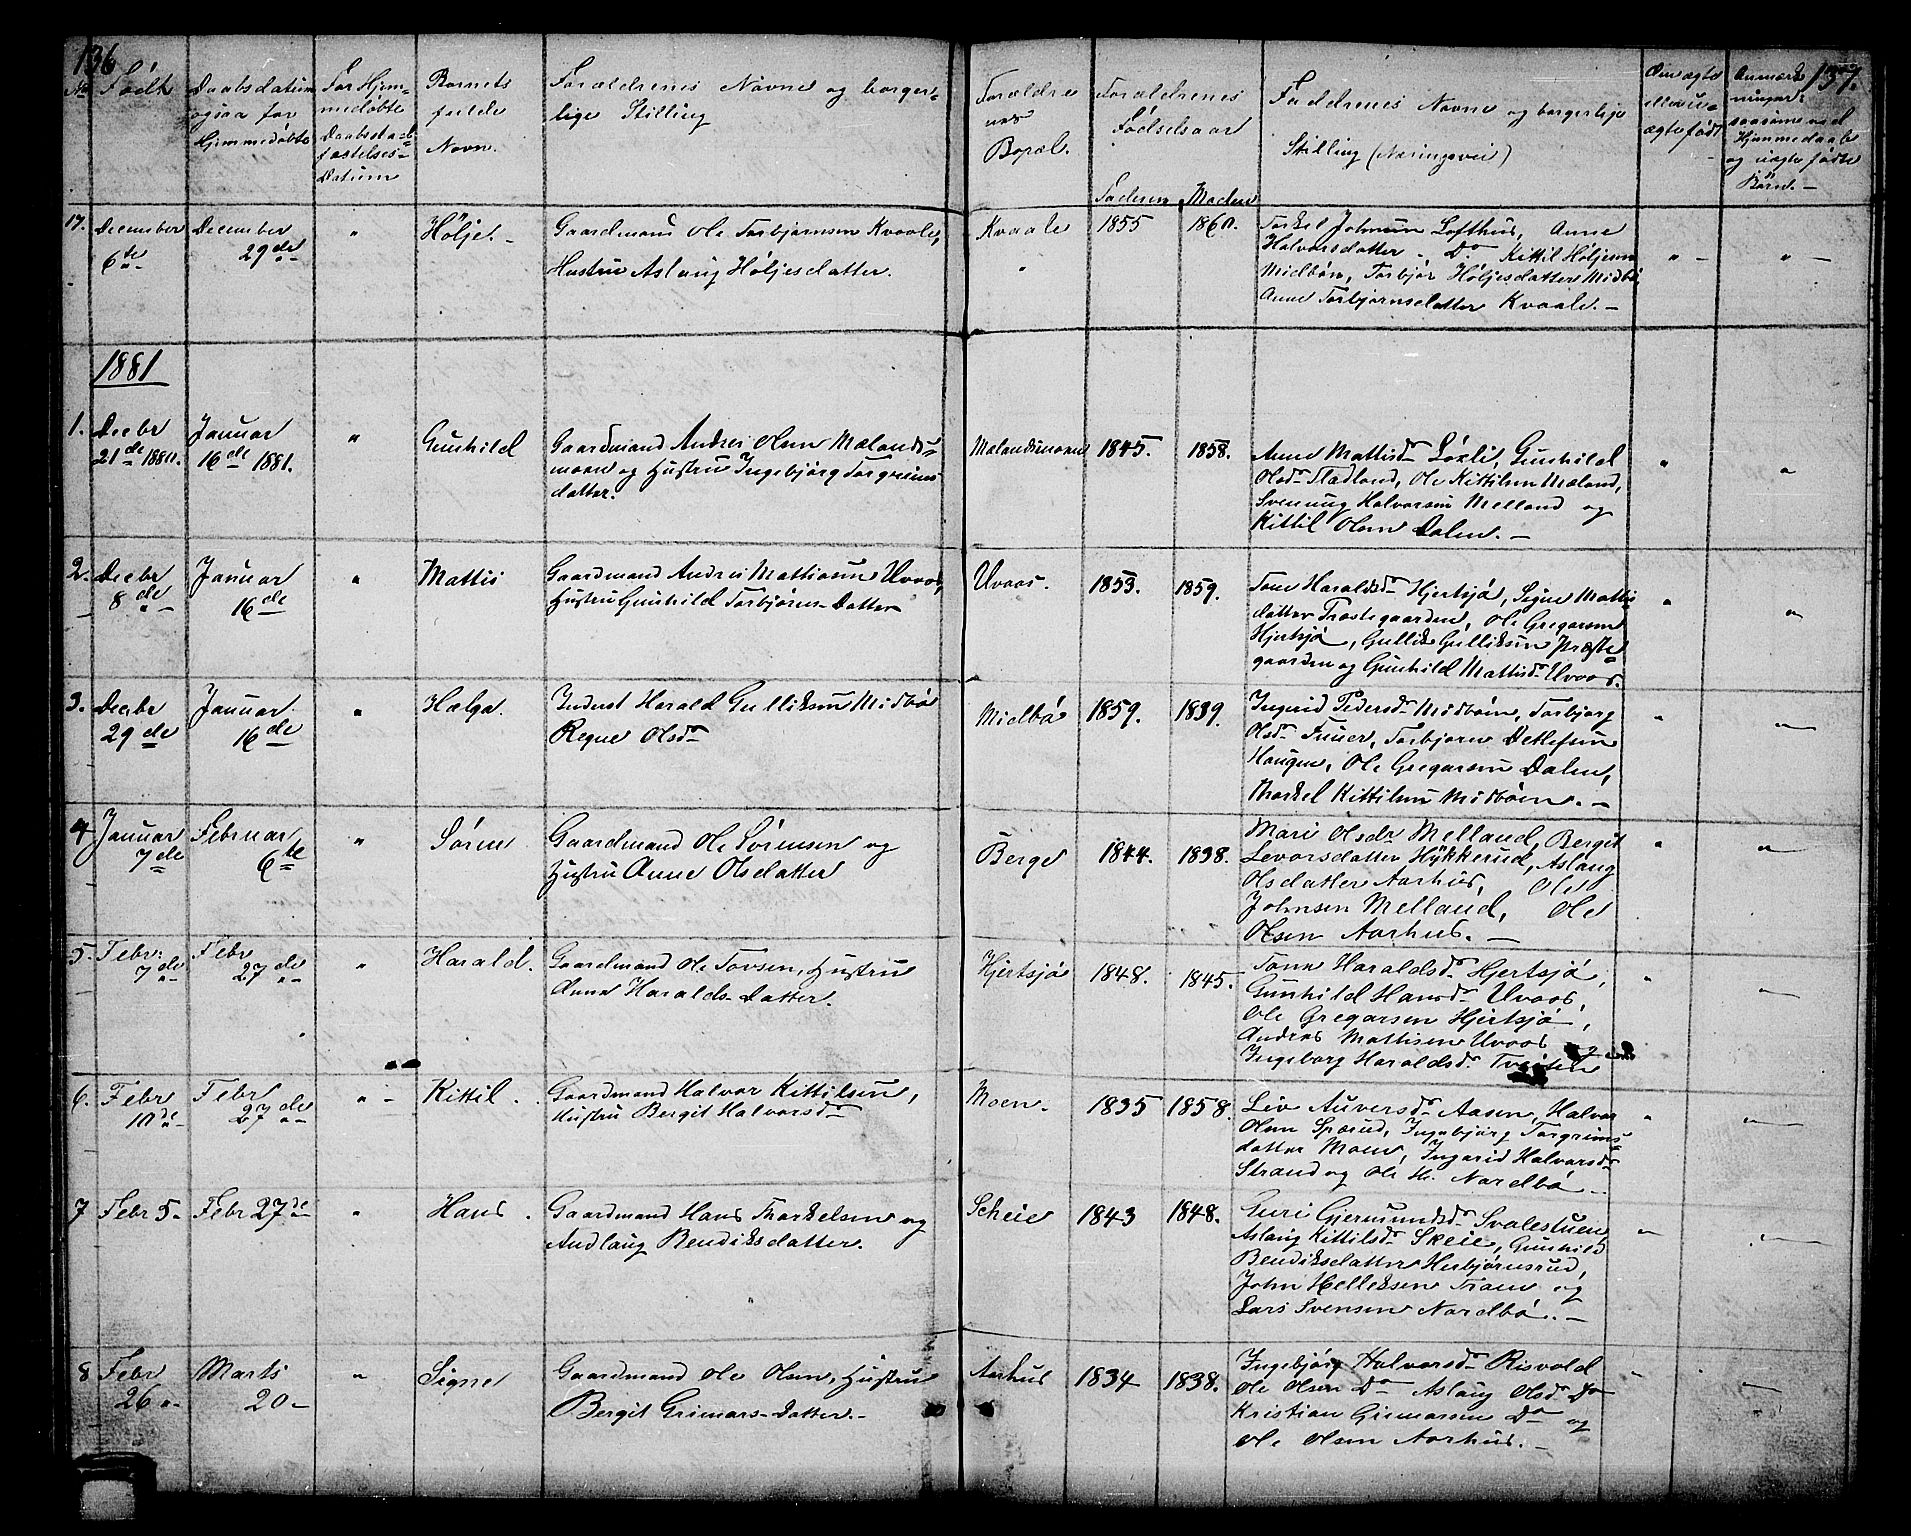 136
137.
No Født
Daabsdatum ogsaa for Hjemmedøbte
For Hjemmedøbte Daabsstadfæstelses-Datum
Barnets fulde Navn.
Forældrenes Navne og borgerlige Stilling
Forældrenes Bopæl.
Forældrenes Fødselsaar
Faderen Moderen
Faddrenes Navne og borgerlige Stilling (Næringsvei)
Om ægte eller uægte født
Anmærkninger saasom ved Hjemmedaab og uægte fødte Børn.-
17. December 6te
December 29de
"
Høljet -
Gaardmand Ole Torbjørnsen Kvaale,
Hustru Aslaug Høljesdatter.
Kvaale
"
1855 1860.
Torkel Johnsen Lofthus, Anne
Halvorsdatter Do. Kittil Høljesen
Midbøn, Torbjør Høljesdatter Midbø,
Anne Torbjørnsdatter Kvaale. -
" -
" -
1881
1. Decbr 21de 1880.
Januar 16de 1881.
"
Gunhild
Gaardmand Andres Olsen Mælands-
moen og Hustru Ingebjørg Torgrims
datter.
Mælandsmoen
1845. 1858.
Anne Mattisdr Løxli, Gunhild
Olsdr Stadland, Ole Kittilsen Mæland,
Svenung Halvorsen Melland og
Kittil Olsen Dalen. -
"
"
2. Decbr 8de
Januar 16de
"
Mattis
Gaardmand Andres Mattissen Uvaas,
Hustru Gunhild Torbjørns-Datter
Uvaas.
1853. 1859.
Tone Haraldsdr Hjertsjø, Signe Mattis
datter Præstegaarden, Ole Gregarsen
Hjertsjø, Gullik Gulliksen Præste-
gaarden og Gunhild Mattisdr Uvaas.
"
"
3. Decbr 29de
Januar 16de
"
Hælga.
Inderst Harald Gulliksen Midbø
Regne Olsdr
Midbø
1859. 1839.
Ingerid Pedersdr Midbøen, Torbjørg
Olsdr Fuuer, Torbjørn Detlefsen
Haugen, Ole Gregarsen Dalen,
Torkel Kittilsen Midbøen. -
"
"
4 Januar 7de
Februar 6te
"
Søren
Gaardmand Ole Sørensen og
Hustru Anne Olsdatter
Berge
1844. 1838.
Mari Olsdr Melland, Bergit
Levorsdatter Hykkerud, Aslaug
Olsdatter Aarhus, Ole
Johnsen Melland, Ole
Olsen Aarhus. -
"
"
5. Febr. 7de
Febr 27de
"
Harald.
Gaardmand Ole Tovsen, Hustru
Anne Haralds-Datter.
Hjertsjø
1848. 1845.
Tone Haraldsdr Hjertsjø,
Gunhild Hansdr Uvaas,
Ole Gregarsen Hjertsjø,
Andres Mattisen Uvaas
Ingeborg Haraldsdr Tveiten
"
"
6. Febr 10de
Febr 27de
" -
Kittil.
Gaardmand Halvor Kittilsen,
Hustru Bergit Halvorsdr
Moen.
1835 1858.
Liv Auversdr Aasen, Halvor
Olsen Sperud, Ingebjørg Torgrims-
datter Moen, Ingerid Halvorsdr
Strand og Ole H. Nordbø -
"
"
7 Febr 5.
Febr 27de
"
Hans.
Gaardmand Hans Torkelsen og
Andlaug Bendiksdatter.
Scheie
1843 1848.
Guri Gjermundsdr Svalestuen
Aslaug Kittilsdr Skeie, Gunhild
Bendiksdatter Herbjørnsrud,
John Helleksen Traen og
Lars Svensen Nordbø. -
"
"
8 Febr 26.
Marts 20 -
"
Signe
Gaardmand Ole Olsen, Hustru
Bergit Grimars-Datter. -
Aarhus
1834 1838.
Ingebjørg Halvorsdr Risvold
Ole Olsen Do Aslaug Olsdr Do
Kristian Gunnarsen Do og
Ole Olsen Aarhus. -
"
"